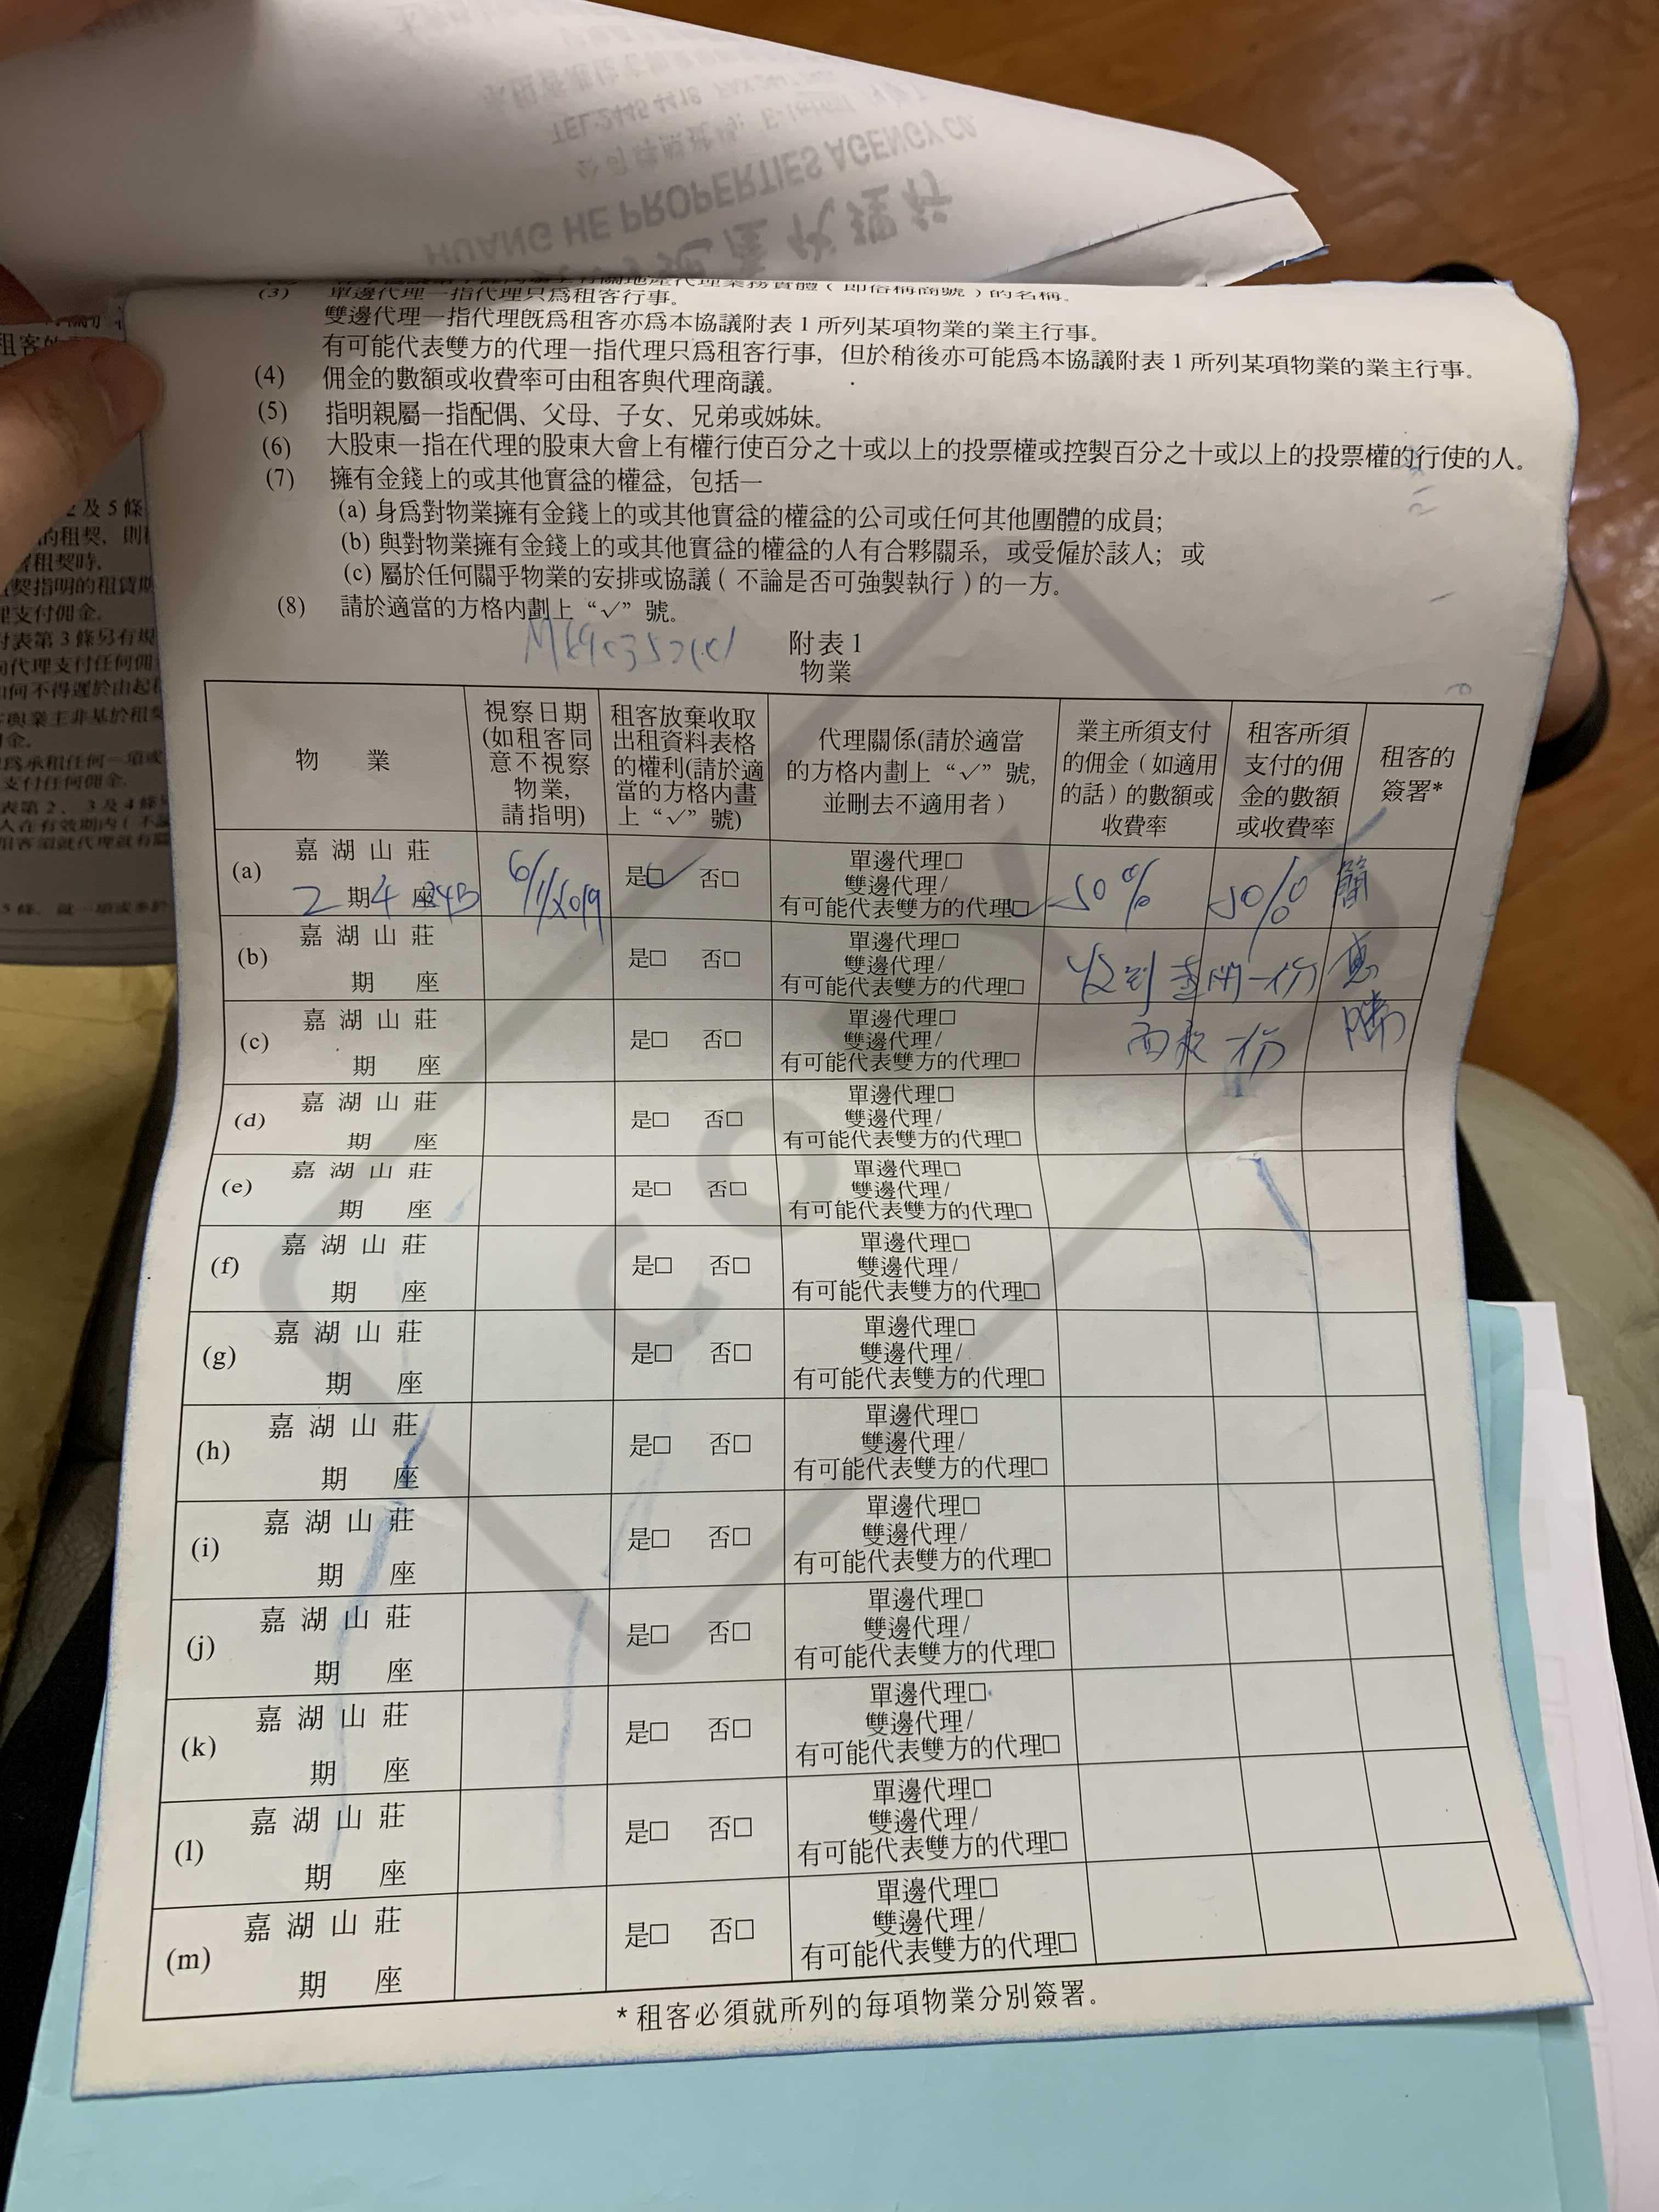 HUANG HE PROPERTIES AGENCY CO.
TEL:2445 4418
(3) 單邊代理一指代理只爲租客行事。
雙邊代理一指代理旣爲租客亦爲本協議附表 1 所列某項物業的業主行事。
有可能代表雙方的代理一指代理只爲租客行事，但於稍後亦可能爲本協議附表 1 所列某項物業的業主行事。
(4) 佣金的數額或收費率可由租客與代理商議。
(5) 指明親屬一指配偶、父母、子女、兄弟或姊妹。
(6) 大股東一指在代理的股東大會上有權行使百分之十或以上的投票權或控製百分之十或以上的投票權的行使的人。
(7) 擁有金錢上的或其他實益的權益，包括一
(a) 身爲對物業擁有金錢上的或其他實益的權益的公司或任何其他團體的成員；
(b) 與對物業擁有金錢上的或其他實益的權益的人有合夥關系，或受僱於該人；或
(c) 屬於任何關乎物業的安排或協議（不論是否可強製執行）的一方。
(8) 請於適當的方格内劃上“√”號。
附表 1
物業
物 業
視察日期
(如租客同
意不視察
物業,
請指明)
租客放棄收取
出租資料表格
的權利(請於適
當的方格内畫
上“√”號)
代理關係(請於適當
的方格内劃上“√”號,
並刪去不適用者)
業主所須支付
的佣金（如適用
的話）的數額或
收費率
租客所須
支付的佣
金的數額
或收費率
租客的
簽署*
(a) 嘉 湖 山 莊
2 期 4 座 24B
6/1/2019
是□ 否□
單邊代理□
雙邊代理/
有可能代表雙方的代理□
50%
50%
簡
(b) 嘉 湖 山 莊
期 座
是□ 否□
單邊代理□
雙邊代理/
有可能代表雙方的代理□
收到 一份
惠
(c) 嘉 湖 山 莊
期 座
是□ 否□
單邊代理□
雙邊代理/
有可能代表雙方的代理□
一份
(d) 嘉 湖 山 莊
期 座
是□ 否□
單邊代理□
雙邊代理/
有可能代表雙方的代理□
(e) 嘉 湖 山 莊
期 座
是□ 否□
單邊代理□
雙邊代理/
有可能代表雙方的代理□
(f) 嘉 湖 山 莊
期 座
是□ 否□
單邊代理□
雙邊代理/
有可能代表雙方的代理□
(g) 嘉 湖 山 莊
期 座
是□ 否□
單邊代理□
雙邊代理/
有可能代表雙方的代理□
(h) 嘉 湖 山 莊
期 座
是□ 否□
單邊代理□
雙邊代理/
有可能代表雙方的代理□
(i) 嘉 湖 山 莊
期 座
是□ 否□
單邊代理□
雙邊代理/
有可能代表雙方的代理□
(j) 嘉 湖 山 莊
期 座
是□ 否□
單邊代理□
雙邊代理/
有可能代表雙方的代理□
(k) 嘉 湖 山 莊
期 座
是□ 否□
單邊代理□
雙邊代理/
有可能代表雙方的代理□
(l) 嘉 湖 山 莊
期 座
是□ 否□
單邊代理□
雙邊代理/
有可能代表雙方的代理□
(m) 嘉 湖 山 莊
期 座
是□ 否□
單邊代理□
雙邊代理/
有可能代表雙方的代理□
* 租客必須就所列的每項物業分別簽署。
COPY